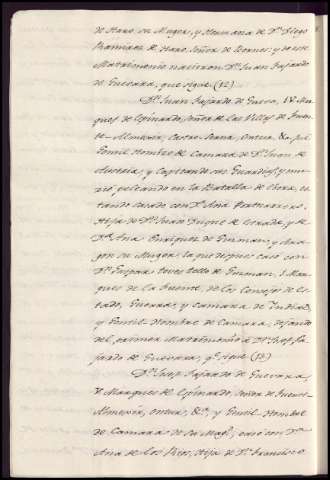 de Haro, su Muger, y Hermana de Dn. Diego
Ramirez de Haro, Señor de Bornos; y de este
Matrimonio nacieron Dn. Juan Fajardo
de Guevara, que sigue (12)
Dn. Juan Fajardo de Guevara, IV Mar
ques de Espinardo, Señor de las Villas de Fuen
te-Almexir, Ontur, &a.
Gentil Hombre de Camara de Dn. Juan de
Austria, y Capitan de sus Guardias, y mu
rió, peleando en la Batalla de Ebora, es
tando casado con Da. Ana
Hija de Dn. Juan Duque de Estrada, y de
Da. Ana Enriquez de Guzman, y Ara
gon su Muger: la que despues casó con
Dn. Gaspar Tello de Guzman, 2. Mar
ques de la Fuente, de los Consejos de Es
tado, Guerra, y Camara de Indias,
y Gentil Hombre de Camara, dejando
del primer Matrimonio á Dn. Josef Fa
jardo de Guevara, qe. sigue (13)
Dn. Josef Fajardo de Guevara,
V. Marques de Espinardo, Señor de Fuente
Almexir, Ontur, &a. y Gentil Hombre
de Camara de Su Magd., casó con Da.
Ana de los Rios, Hija de Dn. Francisco